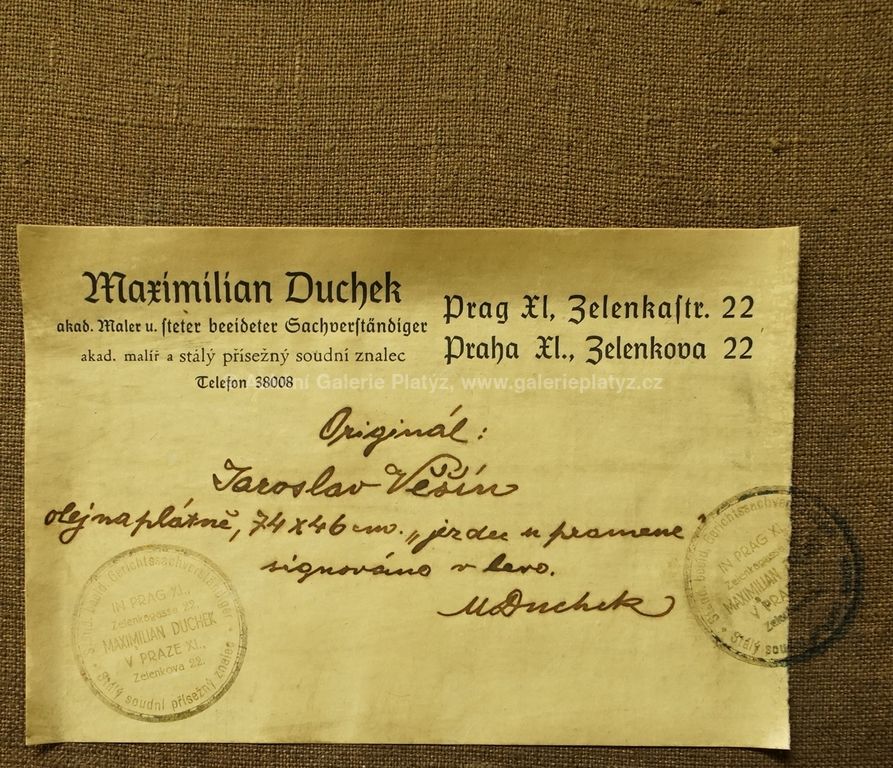 Maximilian Duchek
akad. Maler u. steter beeideter Sachverständiger
akad. malíř a stálý přísežný soudní znalec
Telefon 38008
Prag XI, Zelenkastr. 22
Praha XI., Zelenkova 22
Galerie Platýz, www.galerieplatyz.cz
Originál:
Jaroslav Věšín
olej na plátně, 74 x 46 cm. „jezdec u pramene"
signováno v levo.
M Duchek
Gerichtssachverständiger
IN PRAG XI.,
Zelenkagasse 22.
MAXIMILIAN DUCHEK
V PRAZE XI.,
Zelenkova 22.
Stálý soudní přísežný znalec
IN PRAG XI.
MAXIMILIAN
V PRA
Stálý soudní